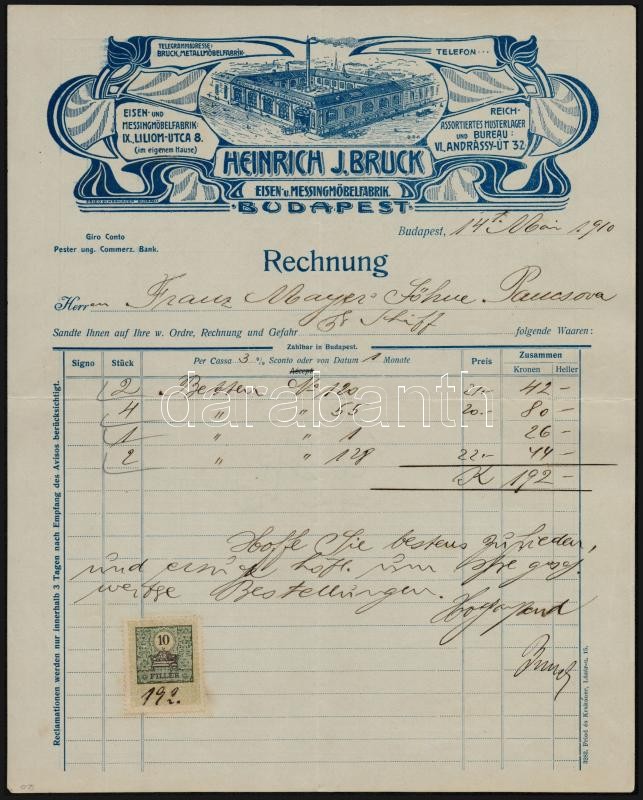 TELEGRAMMADRESSE:
BRUCK, METALLMÖBELFABRIK.
TELEFON
EISEN- UND
MESSINGMÖBELFABRIK:
IX. LILIOM-UTCA 8.
(im eigenem Hause)
REICH-
ASSORTIERTES MUSTERLAGER
UND BUREAU:
VI. ANDRÁSSY-ÚT 32.
HEINRICH J. BRUCK
EISEN- u. MESSINGMÖBELFABRIK.
BUDAPEST
Giro Conto
Pester ung. Commerz. Bank.
Budapest, 14ten Mai 1910
Rechnung
Herren Franz Mayer's Söhne Pancsova
Sandte Ihnen auf Ihre w. Ordre, Rechnung und Gefahr pr Schiff folgende Waaren:
Zahlbar in Budapest.
Signo Stück Per Cassa 3 % Sconto oder von Datum 1 Monate Preis Zusammen
Accept Kronen Heller
2 Betten No 120 21.- 42 -
4 " " 55 20.- 80 -
1 " " 1 26 -
2 " " 128 22.- 44 -
K 192 -
Hoffe Sie bestens zufrieden,
und ersuche höfl. um Ihre gesch.
werthe Bestellungen.
Hochachtend
Bruck
10
FILLÉR
192.
Reclamationen werden nur innerhalb 3 Tagen nach Empfang des Avisos berücksichtigt.
3282. Fried és Krakauer, Lázár-u. 15.
darabanth